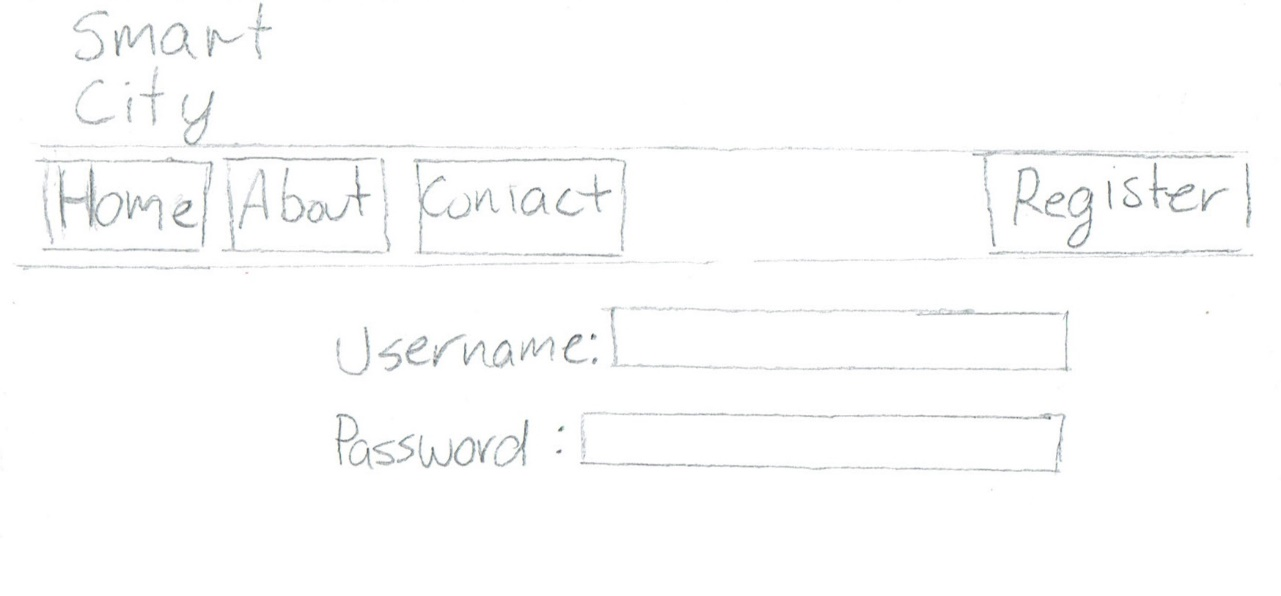 Smart
City
Home About Contact Register
Username:
Password :